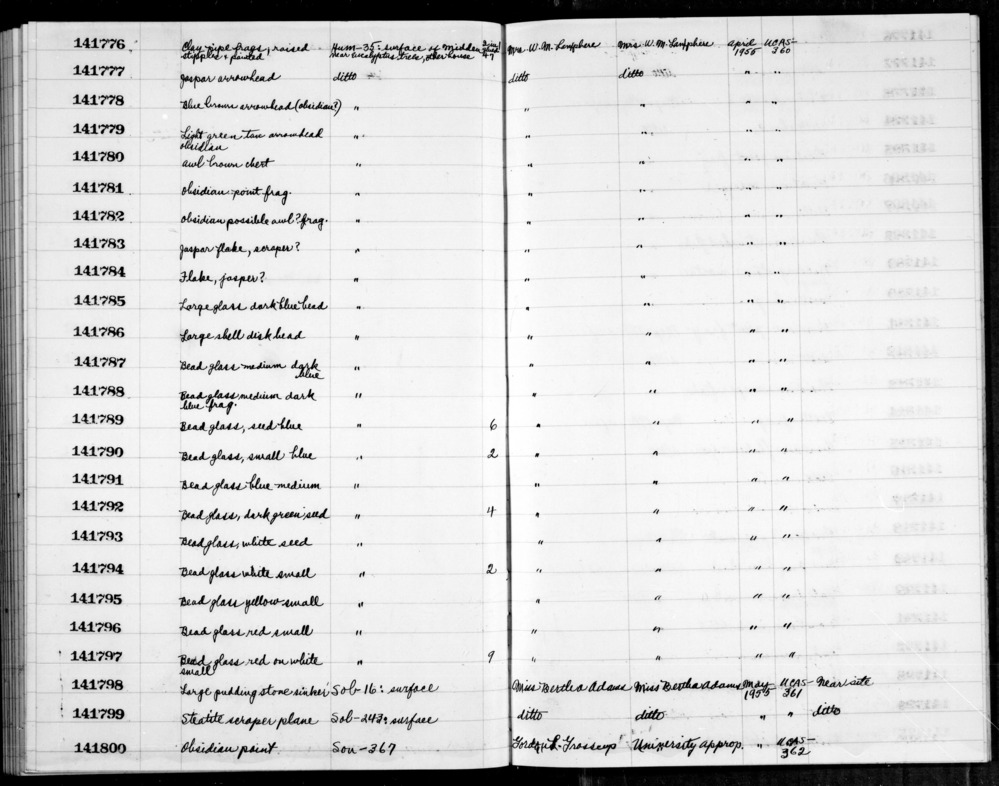 141776 Clay pipe frags, raised stipples & painted Hum-35: surface of Midden near eucalyptus trees, other house 47 Mrs. W. M. Lanphere Mrs. W. M. Lanphere April 1955 UCAS-360
141777 Jaspar arrowhead ditto ditto ditto " "
141778 Blue brown arrowhead (obsidian?) " " " " "
141779 Light green tan arrowhead obsidian " " " " "
141780 awl brown chert " " " " "
141781 Obsidian point frag. " " " " "
141782 Obsidian possible awl? frag. " " " " "
141783 Jaspar flake, scraper? " " " " "
141784 Flake, jasper? " " " " "
141785 Large glass dark blue bead " " " " "
141786 Large shell disk bead " " " " "
141787 Bead glass medium dark blue " " " " "
141788 Bead glass medium dark blue frag. " " " " "
141789 Bead glass, seed blue " 6 " " " "
141790 Bead glass, small blue " 2 " " " "
141791 Bead glass blue medium " " " " "
141792 Bead glass, dark green seed " 4 " " " "
141793 Bead glass, white seed " " " " "
141794 Bead glass white small " 2 " " " "
141795 Bead glass yellow small " " " " "
141796 Bead glass red small " " " " "
141797 Bead glass red on white small " 9 " " " "
141798 Large pudding stone sinker Sol-16: surface Miss Bertha Adams Miss Bertha Adams May 1955 UCAS-361 Near site
141799 Steatite scraper plane Sol-243: surface ditto ditto " " ditto
141800 Obsidian point Son-367 Gordon L. Grosscup University Approp. " UCAS-362